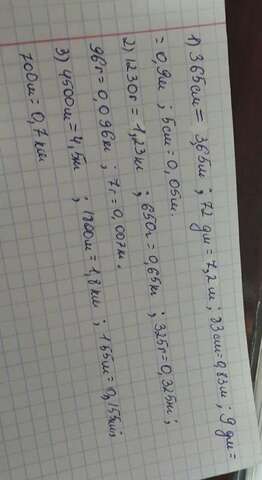 1) 365см = 3,65м ; 72 дм = 7,2 м ; 83см=0,83м ; 9 дм =
= 0,9м ; 5см = 0,05м.
2) 1230г = 1,23кг ; 650г = 0,65кг ; 325г=0,325кг ;
96г = 0,096кг ; 7г = 0,007кг.
3) 4500м = 4,5км ; 1800м = 1,8 км ; 155м = 0,155км;
700м = 0,7 км